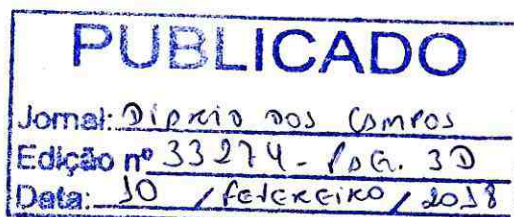 PUBLICADO
Jornal: Diário dos Campos
Edição nº 33274 - PÁG. 3D
Data: 10 / fevereiro / 2018